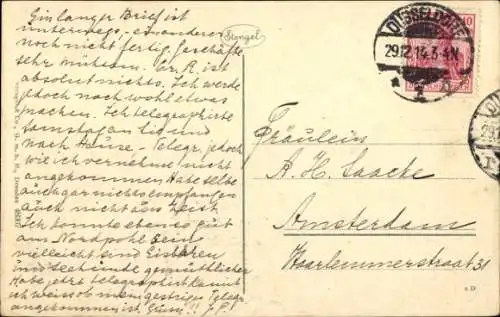 Ein langer Brief ist
unterwegs, ein anderer
noch nicht fertig. Geschäfte
sehr mühsam. Er. R. ist
absolut nichts. Ich werde
jedoch noch wohl etwas
machen. Ich telegraphirte
Samstag an Sie und
nach Hause - Telegr. jedoch
wie ich vernehme nicht
angekommen. Habe selbe
auch gar nichts empfangen
auch nicht aus
Ich könnte ebenso gut
am Nordpol sein
vielleicht sind Eisbären
und Seehunde gemüthlicher
Habe jetzt telegraphirt kannst
ich weiss ob mein gestriges Telegr.
angekommen ist. Gruss!!
Stengel
DÜSSELDORF
29.12.14.3-4N
1
10
Fräulein
A. H. Saacke
Amsterdam
Haarlemmerstraat 31